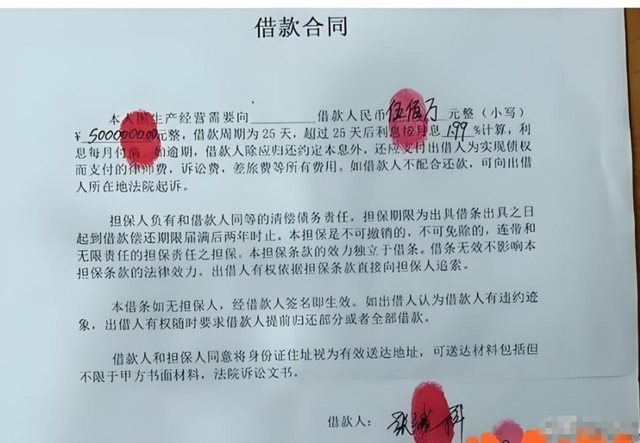 借款合同
本人因生产经营需要向 借款人民币伍佰万元整（小写）
￥5000000.00元整，借款周期为25天，超过25天后利息按月息1.99%计算，利
息每月付清。如逾期，借款人除应归还约定本息外，还应支付出借人为实现债权
而支付的律师费，诉讼费，差旅费等所有费用。如借款人不配合还款，可向出借
人所在地法院起诉。
担保人负有和借款人同等的清偿债务责任，担保期限为出具借条出具之日
起到借款偿还期限届满后两年时止。本担保是不可撤销的，不可免除的，连带和
无限责任的担保责任之担保。本担保条款的效力独立于借条。借条无效不影响本
担保条款的法律效力。出借人有权依据担保条款直接向担保人追索。
本借条如无担保人，经借款人签名即生效。如出借人认为借款人有违约迹
象，出借人有权随时要求借款人提前归还部分或者全部借款。
借款人和担保人同意将身份证住址视为有效送达地址，可送达材料包括但
不限于甲方书面材料，法院诉讼文书。
借款人：